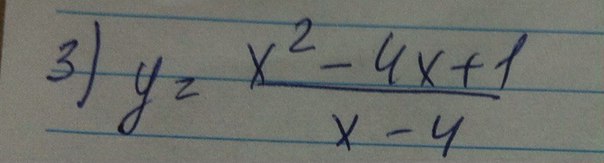 3) y = x² - 4x + 1
x - 4